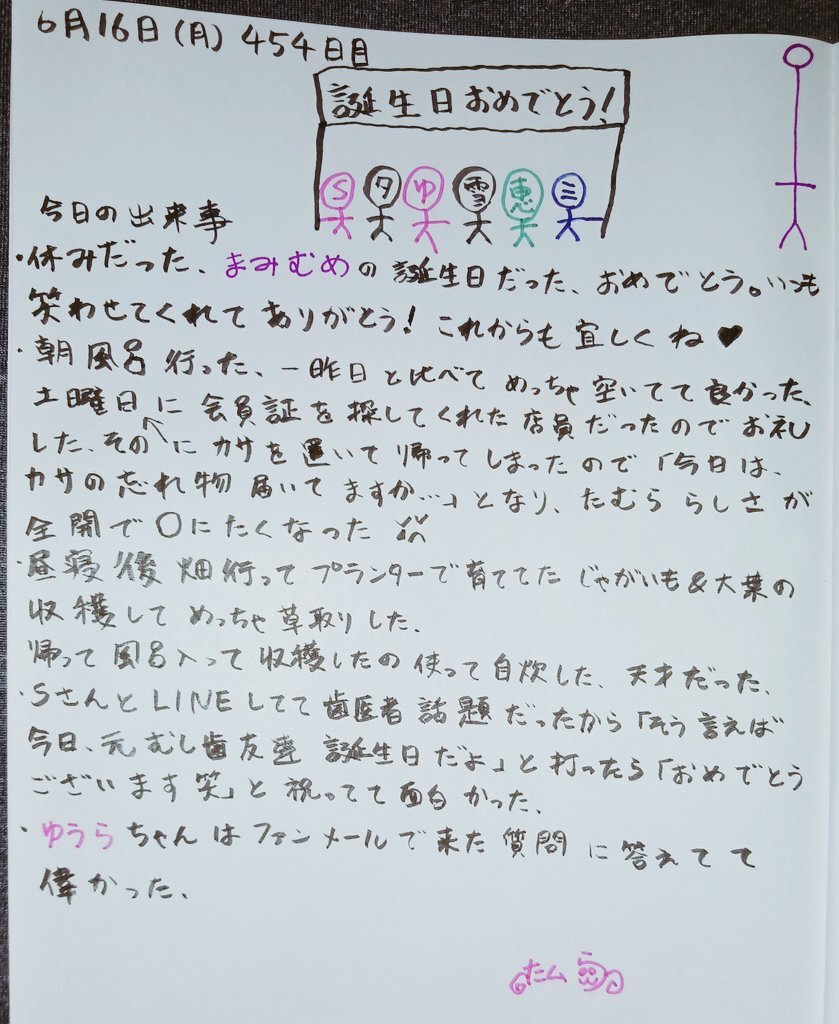 6月16日(月) 454日目
誕生日おめでとう!
S タ ゆ 雪 恵 ミ
今日の出来事
・休みだった、まみむめの誕生日だった、おめでとう。いつも
笑わせてくれてありがとう! これからも宜しくね♥
・朝風呂行った、一昨日と比べてめっちゃ空いてて良かった、
土曜日に会員証を探してくれた店員だったのでお礼
した、その↖にカサを置いて帰ってしまったので「今日は、
カサの忘れ物届いてますか…」となり、たむららしさが
全開で〇にたくなった
・昼寝後畑行ってプランターで育ててたじゃがいも&大葉の
収穫してめっちゃ草取りした、
帰って風呂入って収穫したの使って自炊した、天才だった、
・SさんとLINEしてて歯医者話題だったから「そう言えば
今日、元むし歯友達誕生日だよ」と打ったら「おめでとう
ございます笑」と祝ってて面白かった、
・ゆうらちゃんはファンメールで来た質問に答えてて
偉かった、
たむら